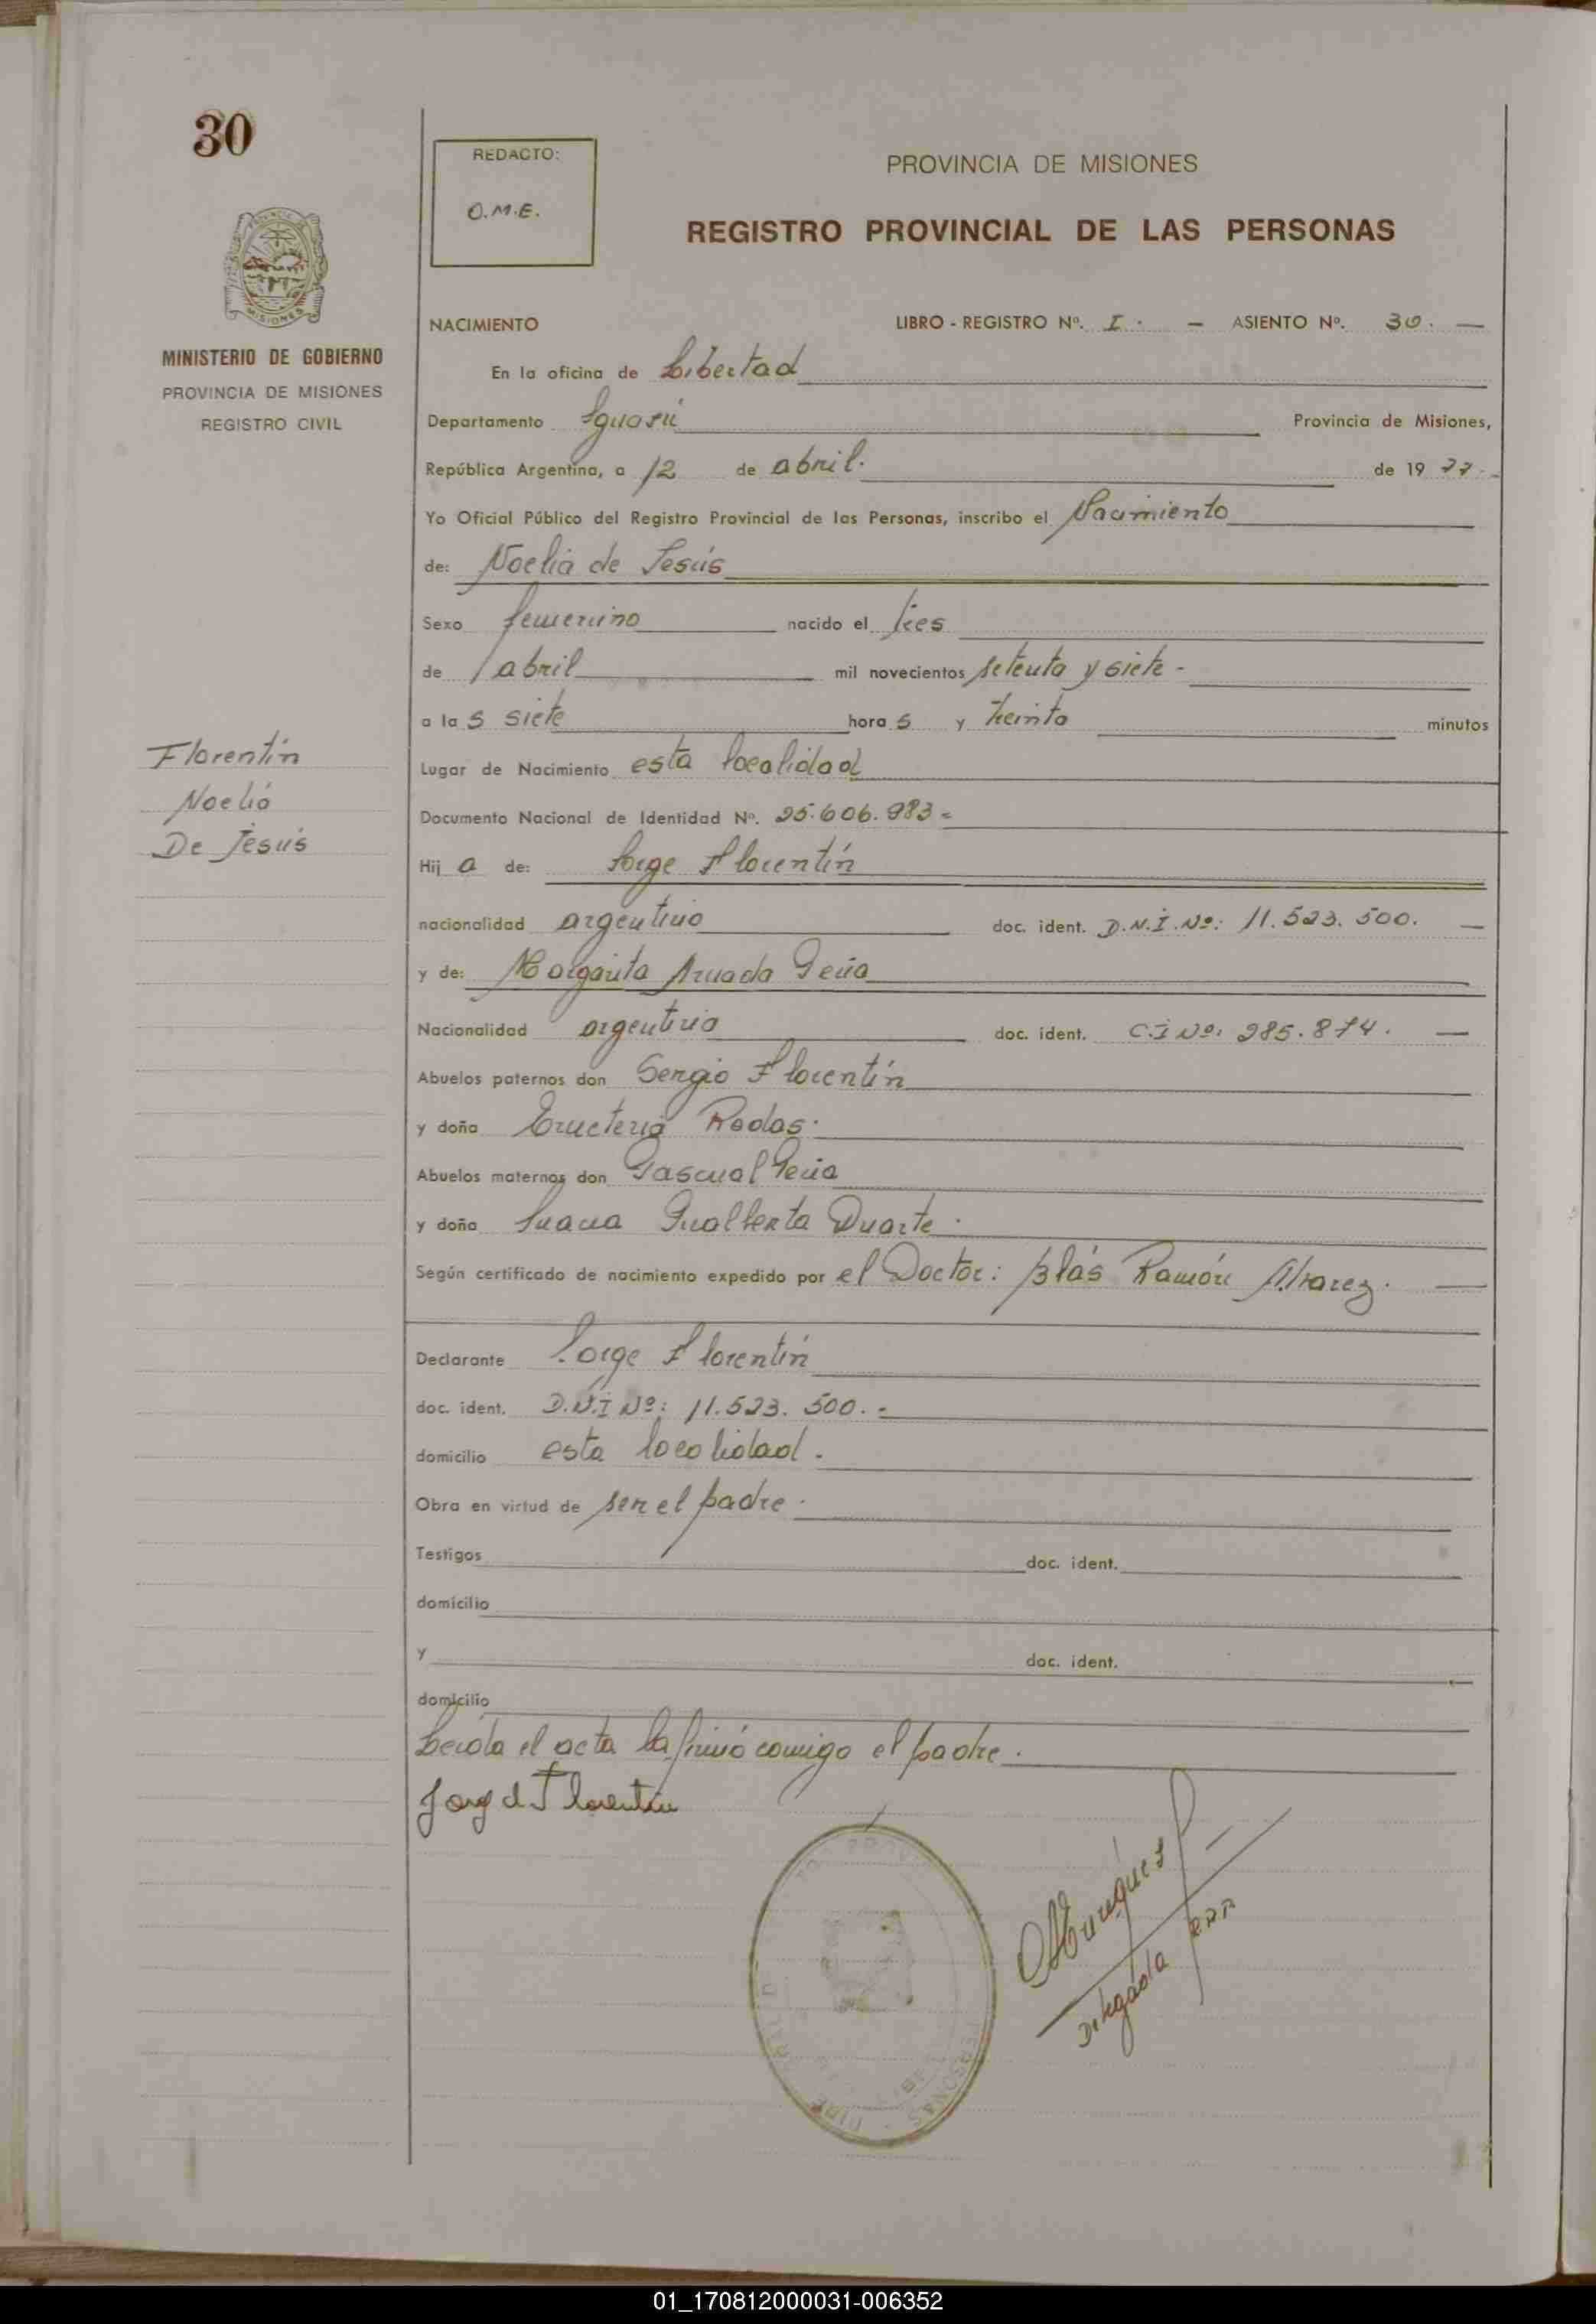 30
REDACTO:
O.M.E.
PROVINCIA DE MISIONES
REGISTRO PROVINCIAL DE LAS PERSONAS
MINISTERIO DE GOBIERNO
PROVINCIA DE MISIONES
REGISTRO CIVIL
NACIMIENTO LIBRO - REGISTRO Nº. I. - ASIENTO Nº. 30. —
En la oficina de Libertad
Departamento Iguasú Provincia de Misiones,
República Argentina, a 12 de abril. de 19 77.-
Yo Oficial Público del Registro Provincial de las Personas, inscribo el Nacimiento
de: Noelia de Jesús
Sexo femenino nacido el tres
de abril mil novecientos setenta y siete -
a la s siete hora s y treinta minutos
Florentín
Noelia
De Jesús
Lugar de Nacimiento esta localidad
Documento Nacional de Identidad Nº. 25.606.983 =
Hij a de: Jorge Florentín
nacionalidad argentino doc. ident. D.N.I. Nº: 11.523.500. —
y de: Margarita Peña
Nacionalidad argentina doc. ident. C.I Nº: 285.874. —
Abuelos paternos don Sergio Florentín
y doña Rodas.
Abuelos maternos don Pascual Peña
y doña Juana Gualberta Duarte.
Según certificado de nacimiento expedido por el Doctor: Blás Ramón Alvarez. —
Declarante Jorge Florentín
doc. ident. D.N.I Nº: 11.523.500. =
domicilio esta localidad.
Obra en virtud de ser el padre.
Testigos doc. ident.
domicilio
y doc. ident.
domicilio
Leída el acta la firmó comigo el padre.
Jorge Florentín
Delegada
PERSONAS
01_170812000031-006352